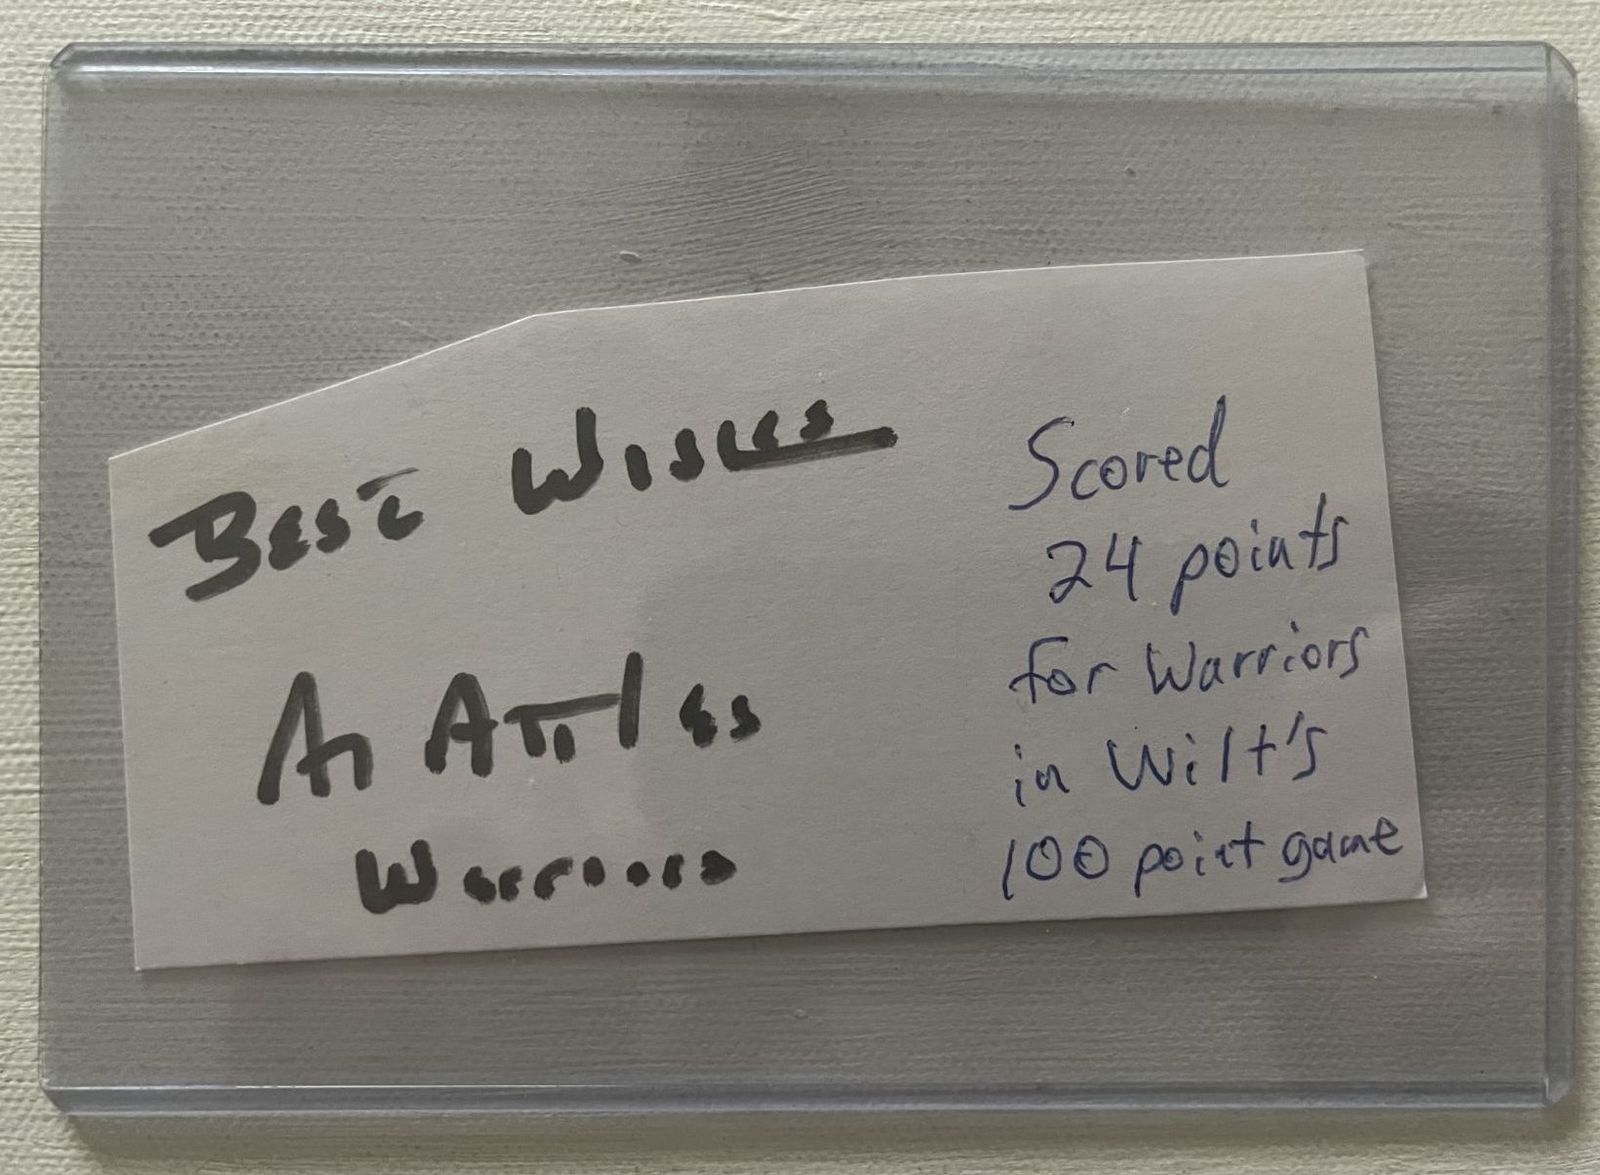 Best Wishes
Al Attles
Warriors
Scored
24 points
for Warriors
in Wilt's
100 point game